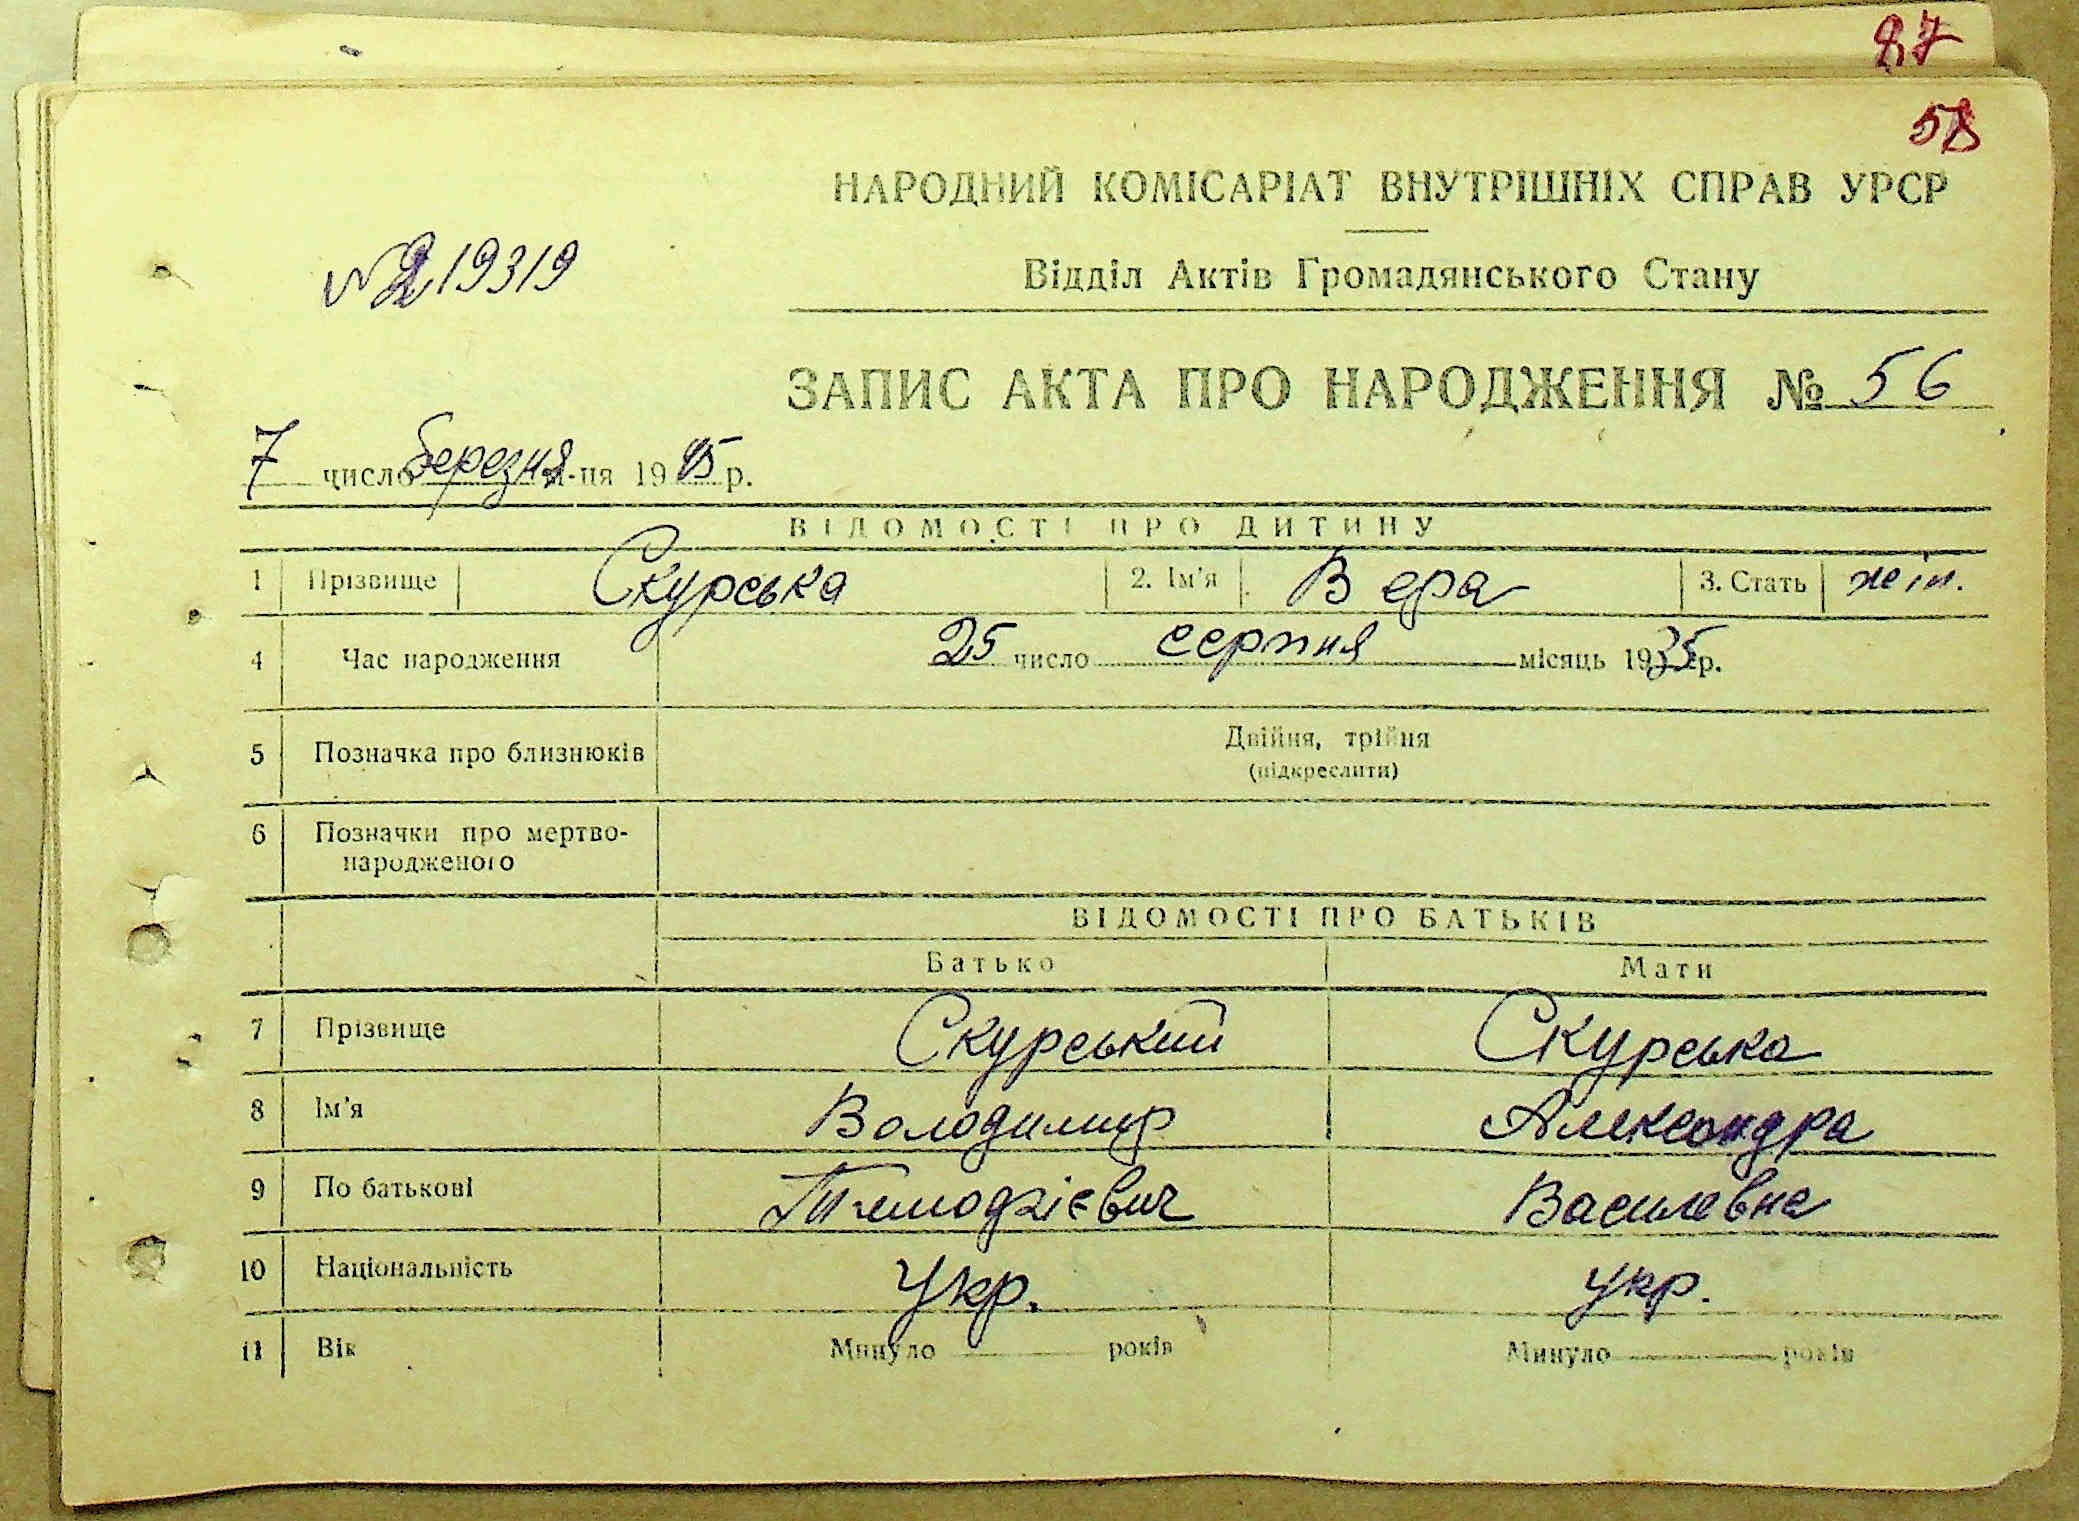 27
58
НАРОДНИЙ КОМІСАРІАТ ВНУТРІШНІХ СПРАВ УРСР
Відділ Актів Громадянського Стану
ЗАПИС АКТА ПРО НАРОДЖЕННЯ № 56
7 число березня м-ця 1945 р.
ВІДОМОСТІ ПРО ДИТИНУ
1 Прізвище Скурська 2. Ім'я Вера 3. Стать жін.
4 Час народження 25 число серпня місяць 1935 р.
5 Позначка про близнюків Двійня, трійня
(підкреслити)
6 Позначки про мертво-
народженого
ВІДОМОСТІ ПРО БАТЬКІВ
Батько Мати
7 Прізвище Скурський Скурська
8 Ім'я Володимир Александра
9 По батькові Василевна
10 Національність Укр. укр.
11 Вік Минуло років Минуло років